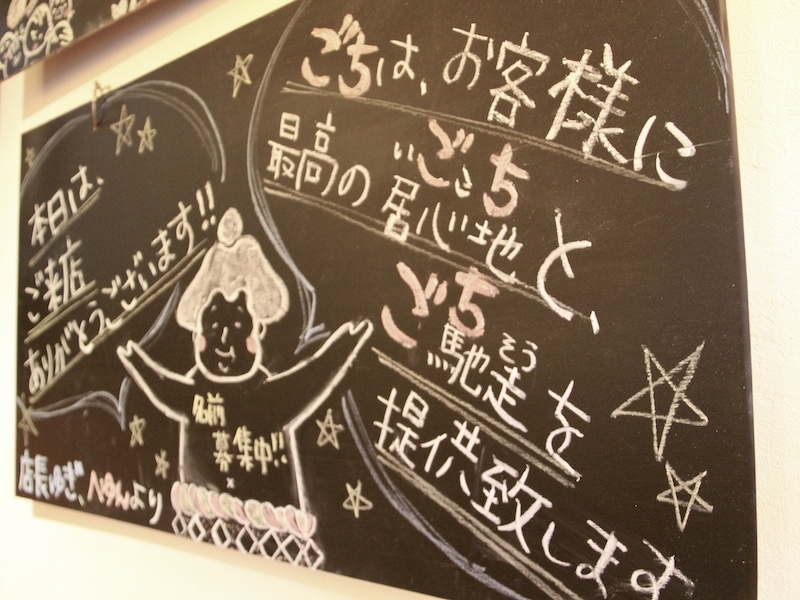 本日は、
ご来店
ありがとうございます!!
ごちは、お客様に
最高の居心地と、
いごこち
ごち馳走を
そう
提供致します
名前
募集中!!
店長ゆぎ、ペタんより